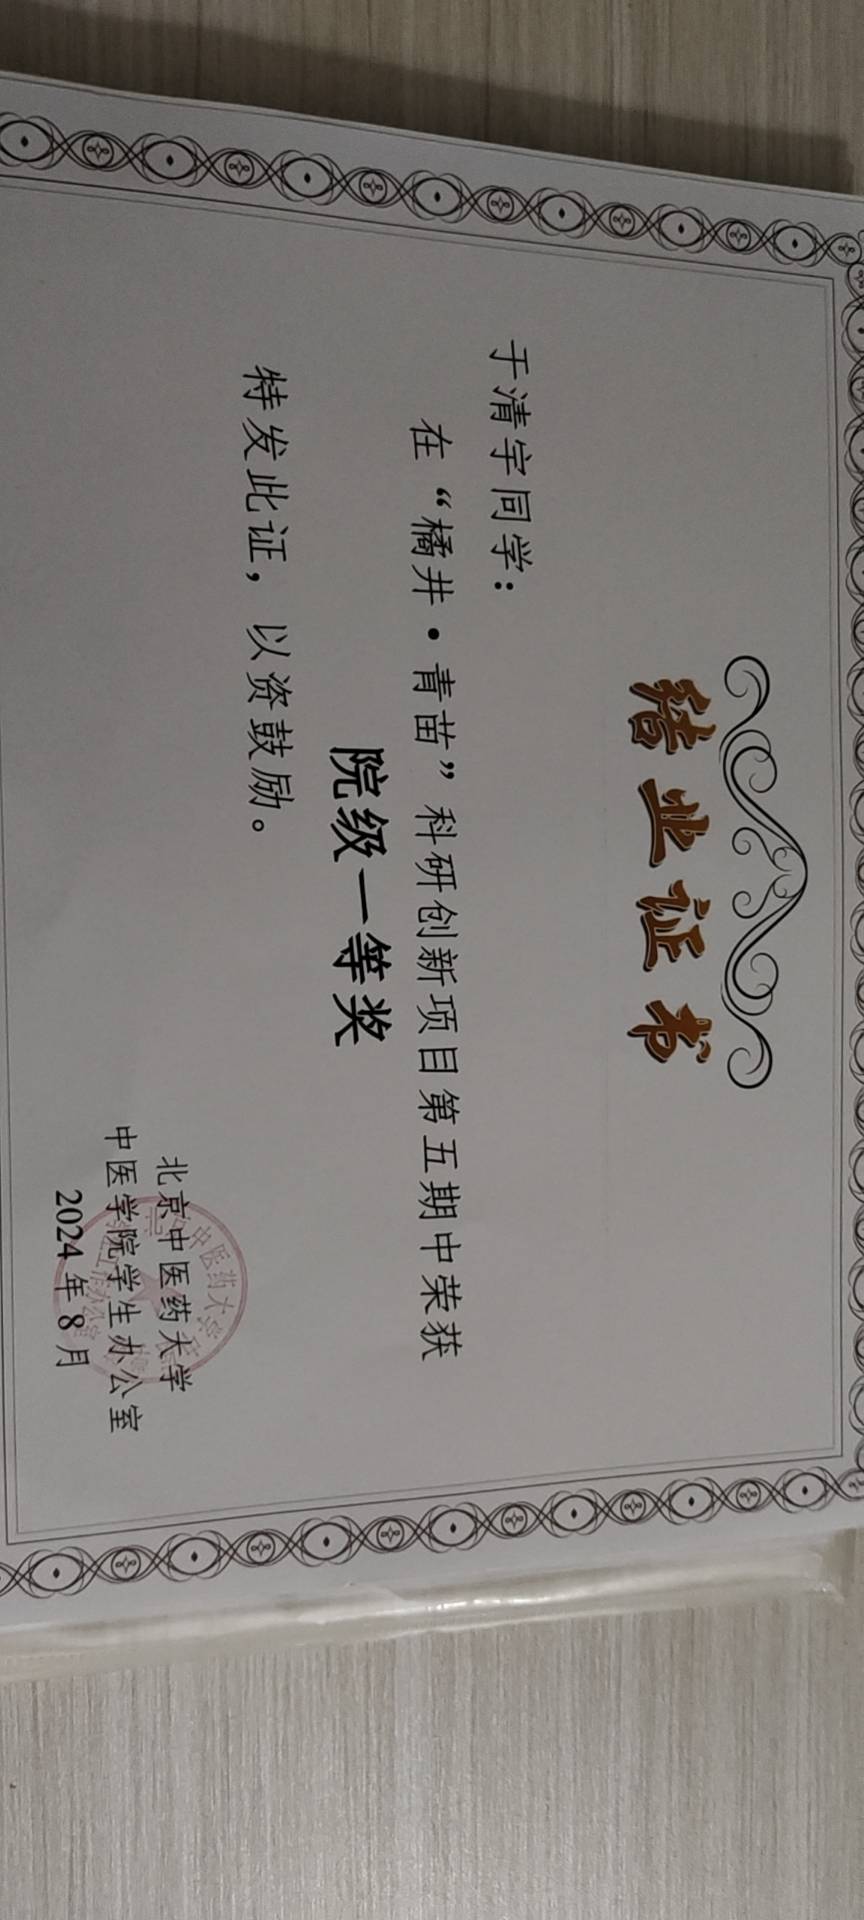 结业证书
于清宇同学：
在“橘井·青苗”科研创新项目第五期中荣获
院级一等奖
特发此证，以资鼓励。
北京中医药大学
中医学院学生办公室
2024年8月